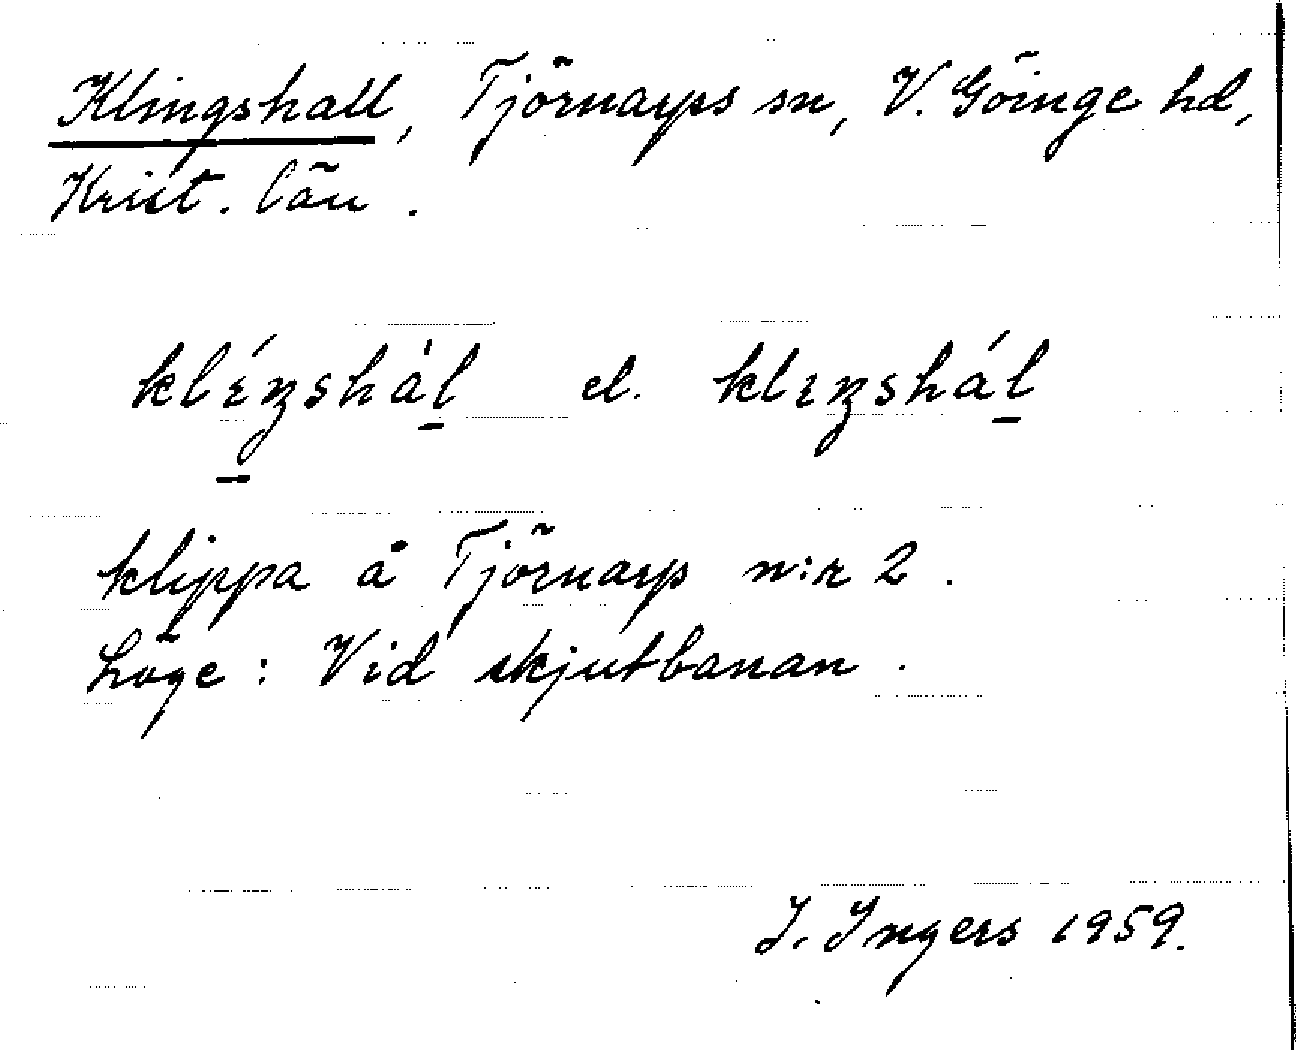 Klingshall, Tjörnarps sn, V. Göinge hd,
Krist. län.
klɪ́ŋshàl el. klɪŋshál
klippa å Tjörnarp n:r 2.
Läge: Vid skjutbanan.
I. Ingers 1959.